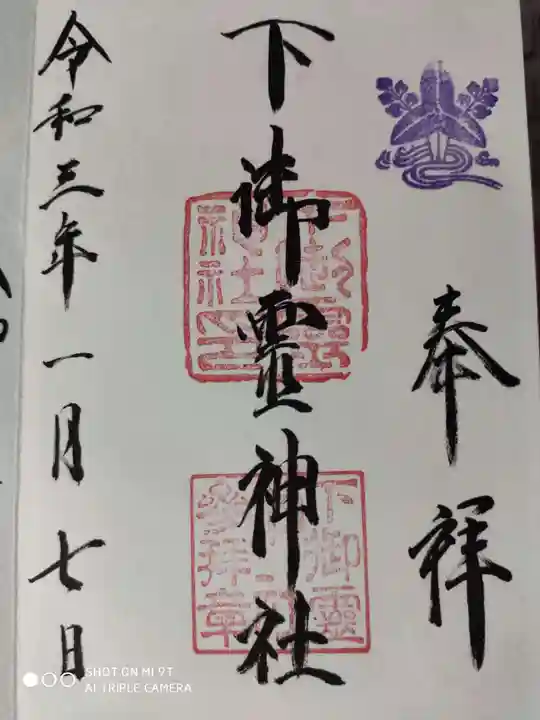 奉祥
下御霊神社
令和三年一月七日
下御霊
参拝章
SHOT ON MI 9T
AI TRIPLE CAMERA